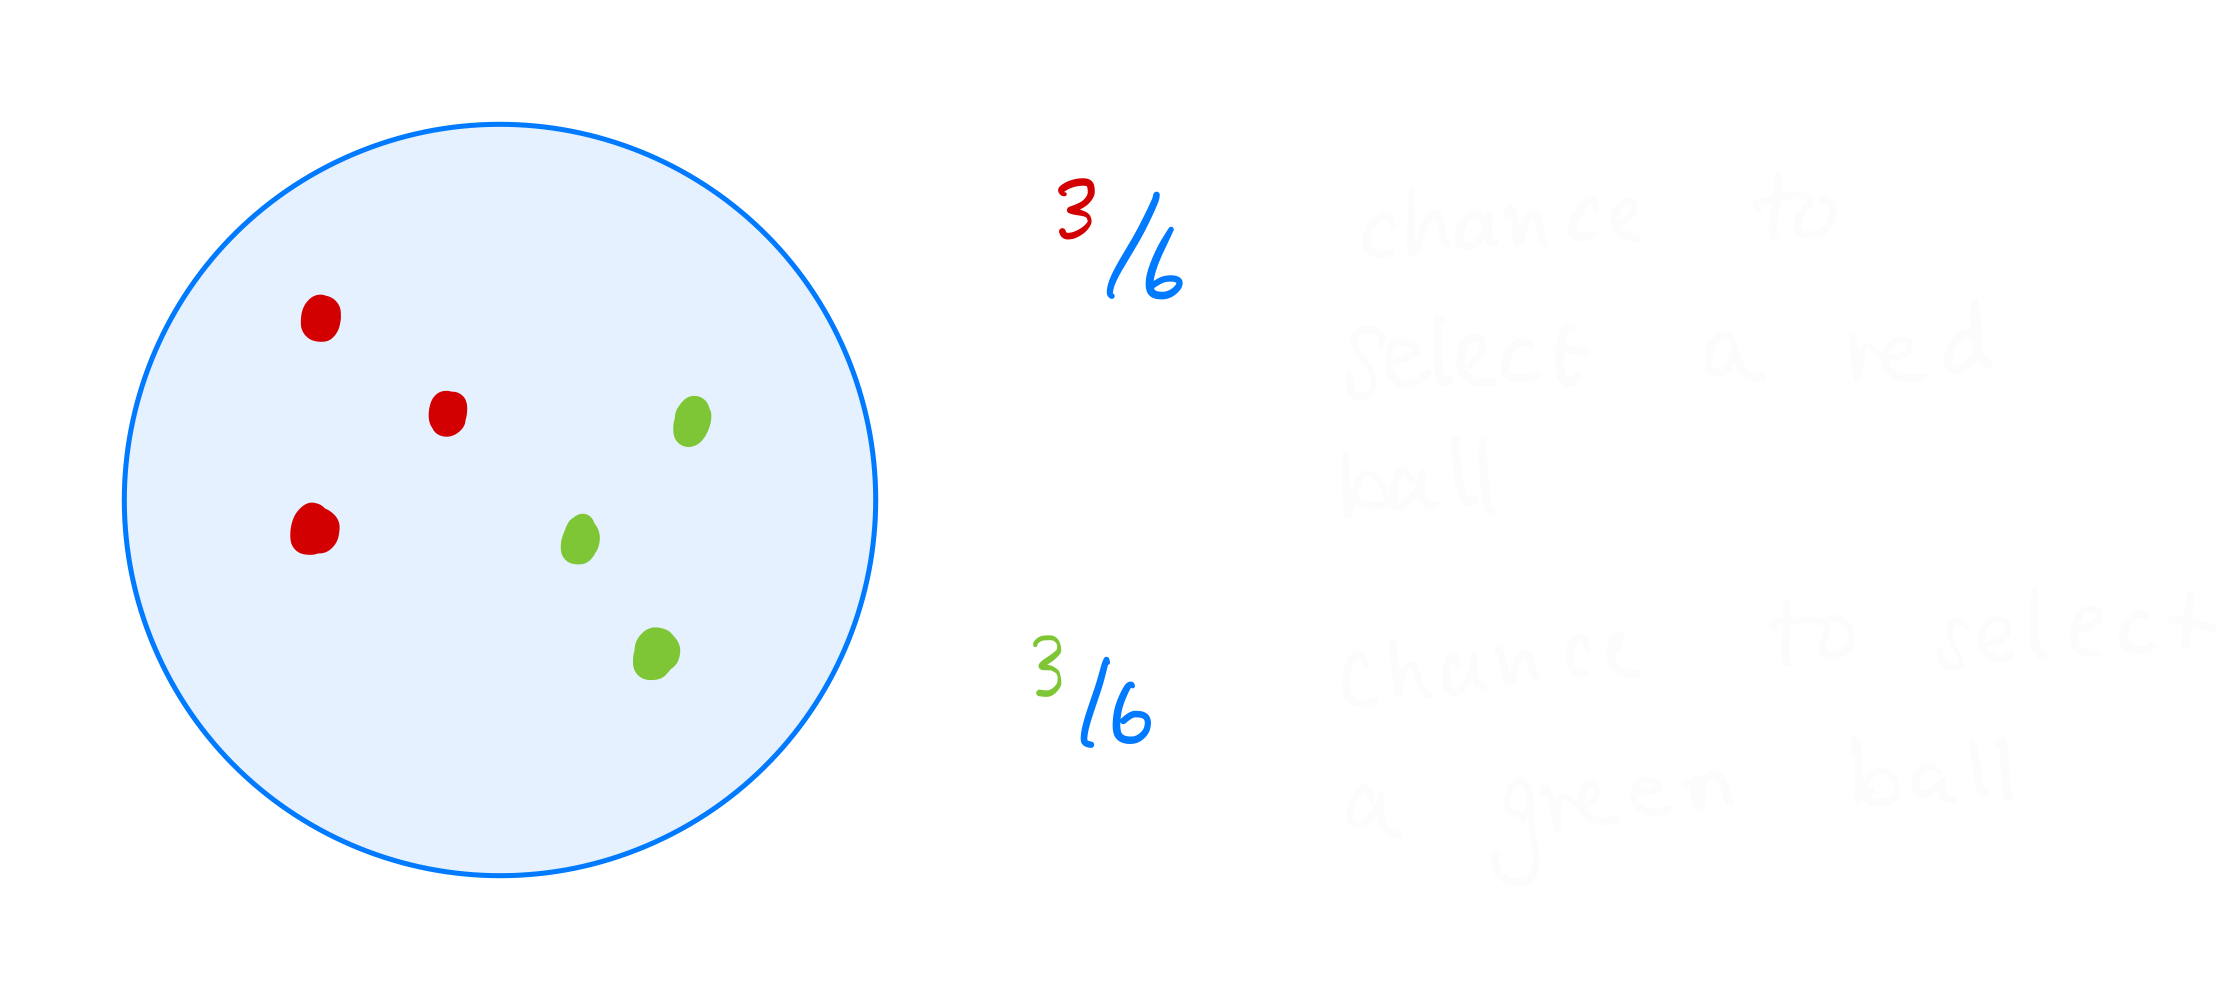 3/6 chance to
select a red
ball
3/6 chance to select
a green ball